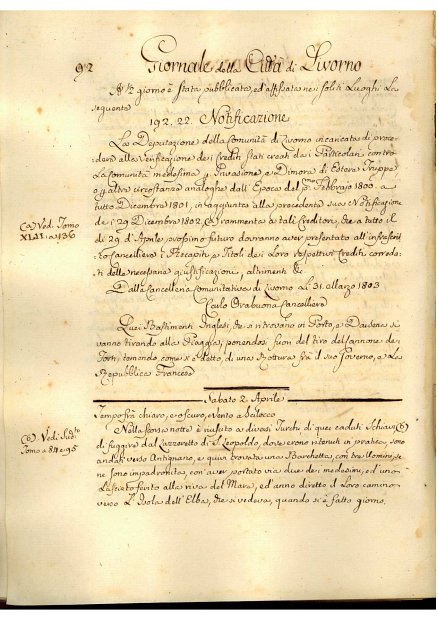 92 Giornale della Città di Livorno
A' 12 giorno è stata pubblicata, ed affissata nei soliti Luoghi La
seguente
192. 22. Notificazione
La Deputazione della Comunità di Livorno incaricata di proce-
dere alla Verificazione dei Crediti stati creati dai Particolari contro
La Comunità medesima p. Invasione, e Dimora di Estera Truppa
o p. altre circostanze analoghe dall' Epoca del Febbrajo 1800. a
tutto Dicembre 1801, in aggiunta alla precedente sua Notificazione
de' 29 Dicembre 1802. (a) rammenta a tali Creditori, che a tutto il
dì 29 d'Aprile prossimo futuro dovranno aver presentato all' infrascrit-
to Cancelliere i Recapiti, e Titoli dei Loro respettivi Crediti corredа-
ti delle necessarie giustificazioni, altrimenti &c.
Dalla Cancelleria Comunitativa di Livorno Li 31. Marzo 1803
Carlo Orabuona Cancelliere
(a) Ved. Tomo
XLII. a 436
Quei Bastimenti Inglesi, che si ritrovano in Porto, e Darsena si
vanno tirando alla Spiaggia, ponendosi fuori del tiro del cannone de'
Forti, temendo, come si è detto, di una Rottura frà il suo Governo, e La
Repubblica Francese
Sabato 2. Aprile
Tempo frà chiaro, e oscuro, vento a Scilocco
Nella scorsa notte è riuscito a diversi Turchi di quei caduti Schiavi (b)
di fuggire dal Lazzeretto di S. Leopoldo, dove erono ritenuti in pratica, sono
andati verso Antignano, e quivi trovata una Barchetta, con tre Uomini, se
ne sono impadroniti, con aver portato via due dei medesimi, ed uno
Lasciato ferito alla riva del Mare, ed anno diretto il Loro camino
verso L'Isola dell' Elba, che si vedeva, quando si è fatto giorno.
(b) Vedi Sud.to
Tomo a 88 e 95